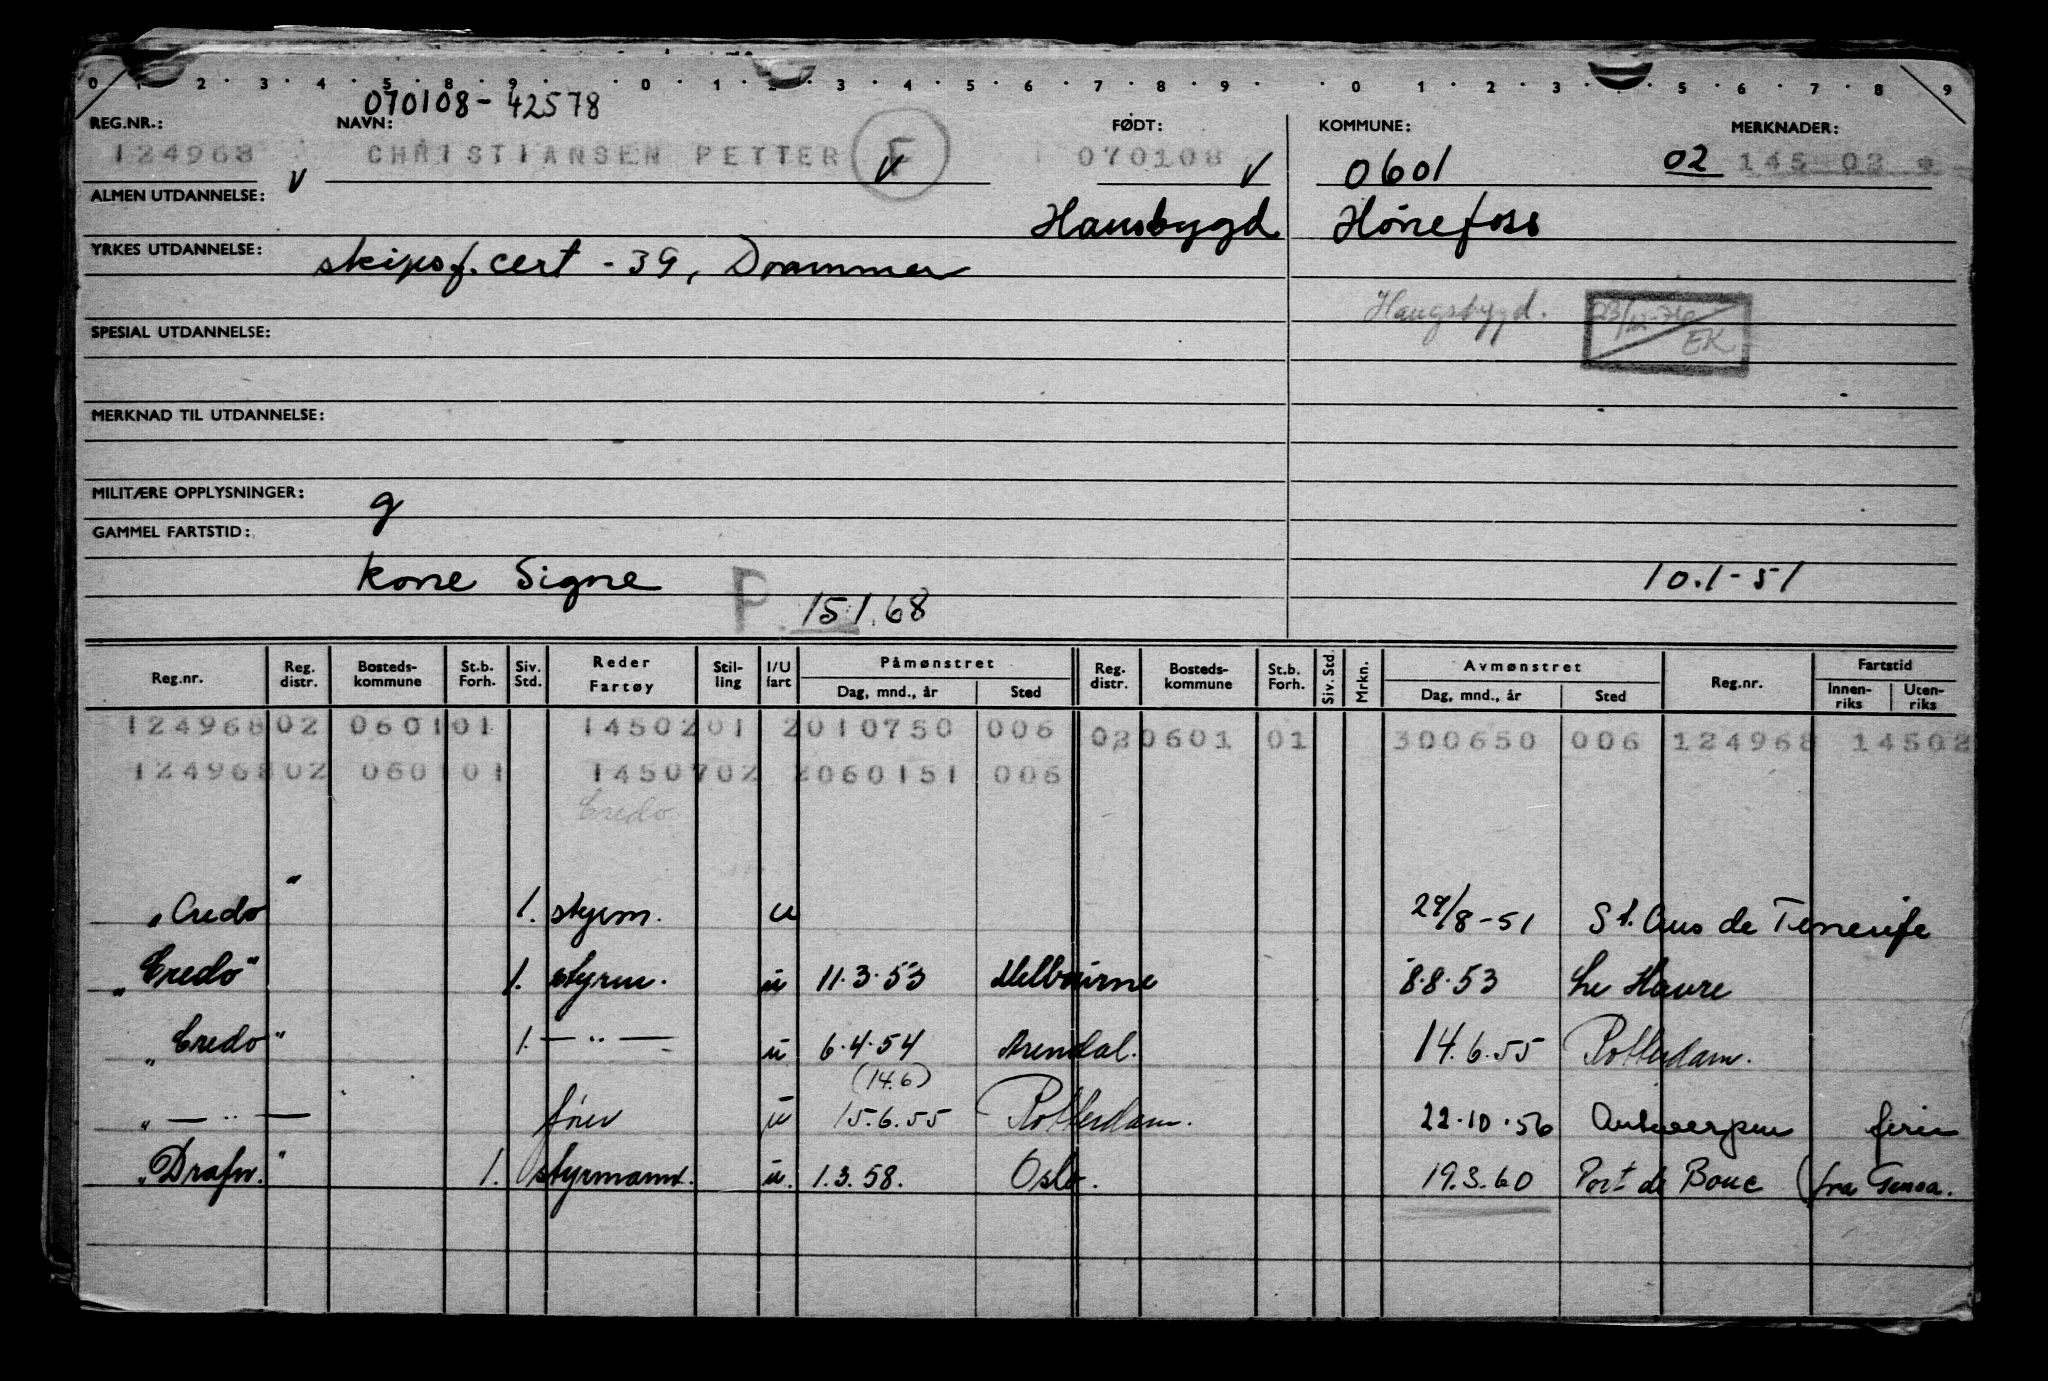 0 1 2 3 4 5 8 9 0 1 2 3 4 5 6 7 8 9 0 1 2 3 5 6 7 8 9
070108-42578
REG.NR.: NAVN: FØDT: KOMMUNE: MERKNADER:
124968 CHRISTIANSEN PETTER F 070108 0601 02 145 02
ALMEN UTDANNELSE: Hausbygd Hönefoss
YRKES UTDANNELSE: skipsf. cert - 39, Drammen
Haugsbygd. EK
SPESIAL UTDANNELSE:
MERKNAD TIL UTDANNELSE:
MILITÆRE OPPLYSNINGER: g
GAMMEL FARTSTID:
kone Signe 10.1-51
P 15.1.68
Reg.nr. Reg. distr. Bosteds-kommune St.b. Forh. Siv. Std. Reder Fartøy Stil-ling I/U fart Påmønstret Dag, mnd., år Sted Reg. distr. Bosteds-kommune St.b. Forh. Siv. Std. Mrkn. Avmønstret Dag, mnd., år Sted Reg.nr. Fartstid Innen-riks Uten-riks
124968 02 0601 01 14502 01 2 010750 006 02 0601 01 300650 006 124968 14502
124968 02 0601 01 14507 02 2 060151 006
Credo
"Credo" 1. styrm. u 29/8-51 St. Aus de Tenerife
"Credo" 1. styrm. u 11.3.53 Melbourne 8.8.53 Le Havre
"Credo" 1. — " — u 6.4.54 Arendal. 14.6.55 Rotterdam.
(14.6)
" — " — förer u 15.6.55 Rotterdam. 22.10.56 Antwerpen ferie
"Drafn." 1. styrmann. u. 1.3.58. Oslo. 19.3.60 Port de Bouc (fra Genoa.